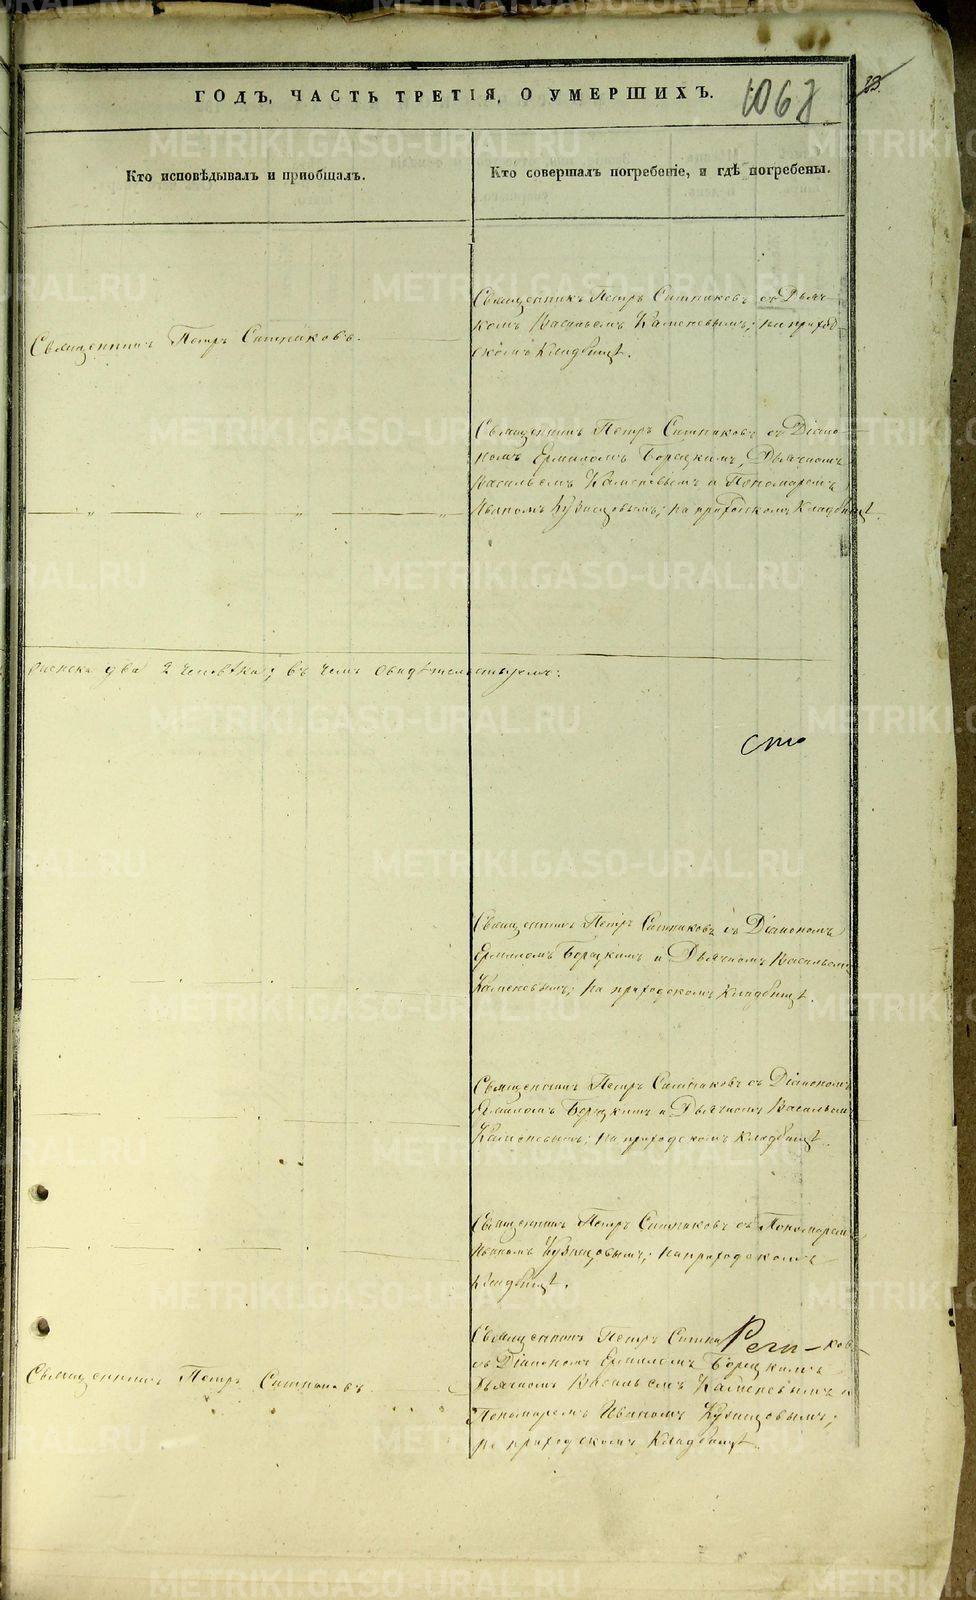 ГОДЪ, ЧАСТЬ ТРЕТІЯ, О УМЕРШИХЪ.
Кто исповѣдывалъ и пріобщалъ.
Кто совершалъ погребеніе, и гдѣ погребены.
Священникъ Петръ Ситниковъ.
Священникъ Петръ Ситниковъ съ Дьяч-
комъ Васильемъ Каменевымъ; на приход-
скомъ кладбищѣ.
Священникъ Петръ Ситниковъ съ Діако-
номъ Ермиломъ Борецкимъ, Дьячкомъ
Васильемъ Каменевымъ и Пономаремъ
Иваномъ Кузнецовымъ; на приходскомъ кладбищѣ
два 2 человѣка; въ чемъ свидѣтельствуемъ:
Священникъ Петръ Ситниковъ съ Діакономъ
Ермиломъ Борецкимъ и Дьячкомъ Васильемъ
Каменевымъ; на приходскомъ кладбищѣ.
Священникъ Петръ Ситниковъ съ Діакономъ
Ермиломъ Борецкимъ и Дьячкомъ Васильемъ
Каменевымъ; на приходскомъ кладбищѣ.
Священникъ Петръ Ситниковъ съ Пономаремъ
Иваномъ Кузнецовымъ; на приходскомъ
кладбищѣ.
Священникъ Петръ Ситниковъ
Священникъ Петръ Ситниковъ
съ Діакономъ Ермиломъ Борецкимъ
Дьячкомъ Васильемъ Каменевымъ и
Пономаремъ Иваномъ Кузнецовымъ;
на приходскомъ кладбищѣ.
METRIKI.GASO-URAL.RU